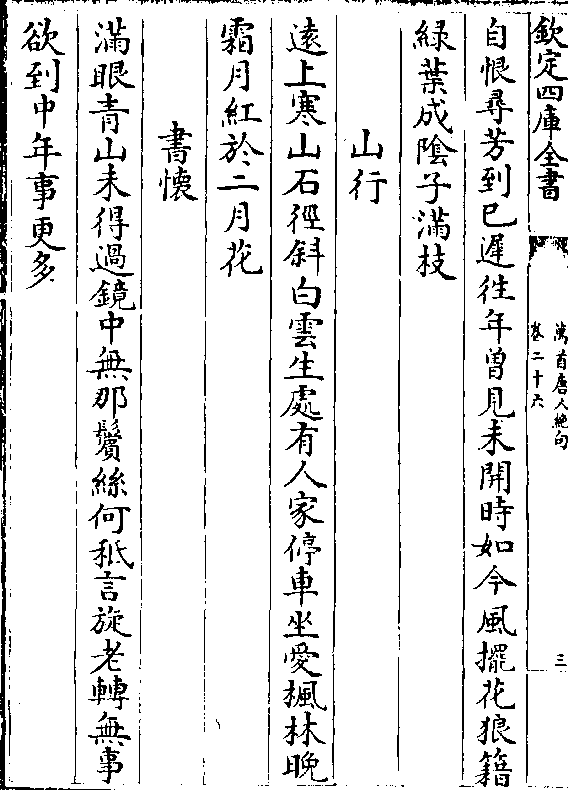 欽定四庫全書
萬首唐人絶句
卷二十六
三
自恨尋芳到已遲往年曽見未開時如今風擺花狼籍
緑葉成陰子滿枝
山行
逺上寒山石徑斜白雲生處有人家停車坐愛楓林晚
霜月紅於二月花
書懐
滿眼青山未得過鏡中無那鬢絲何秪言旋老轉無事
欲到中年事更多